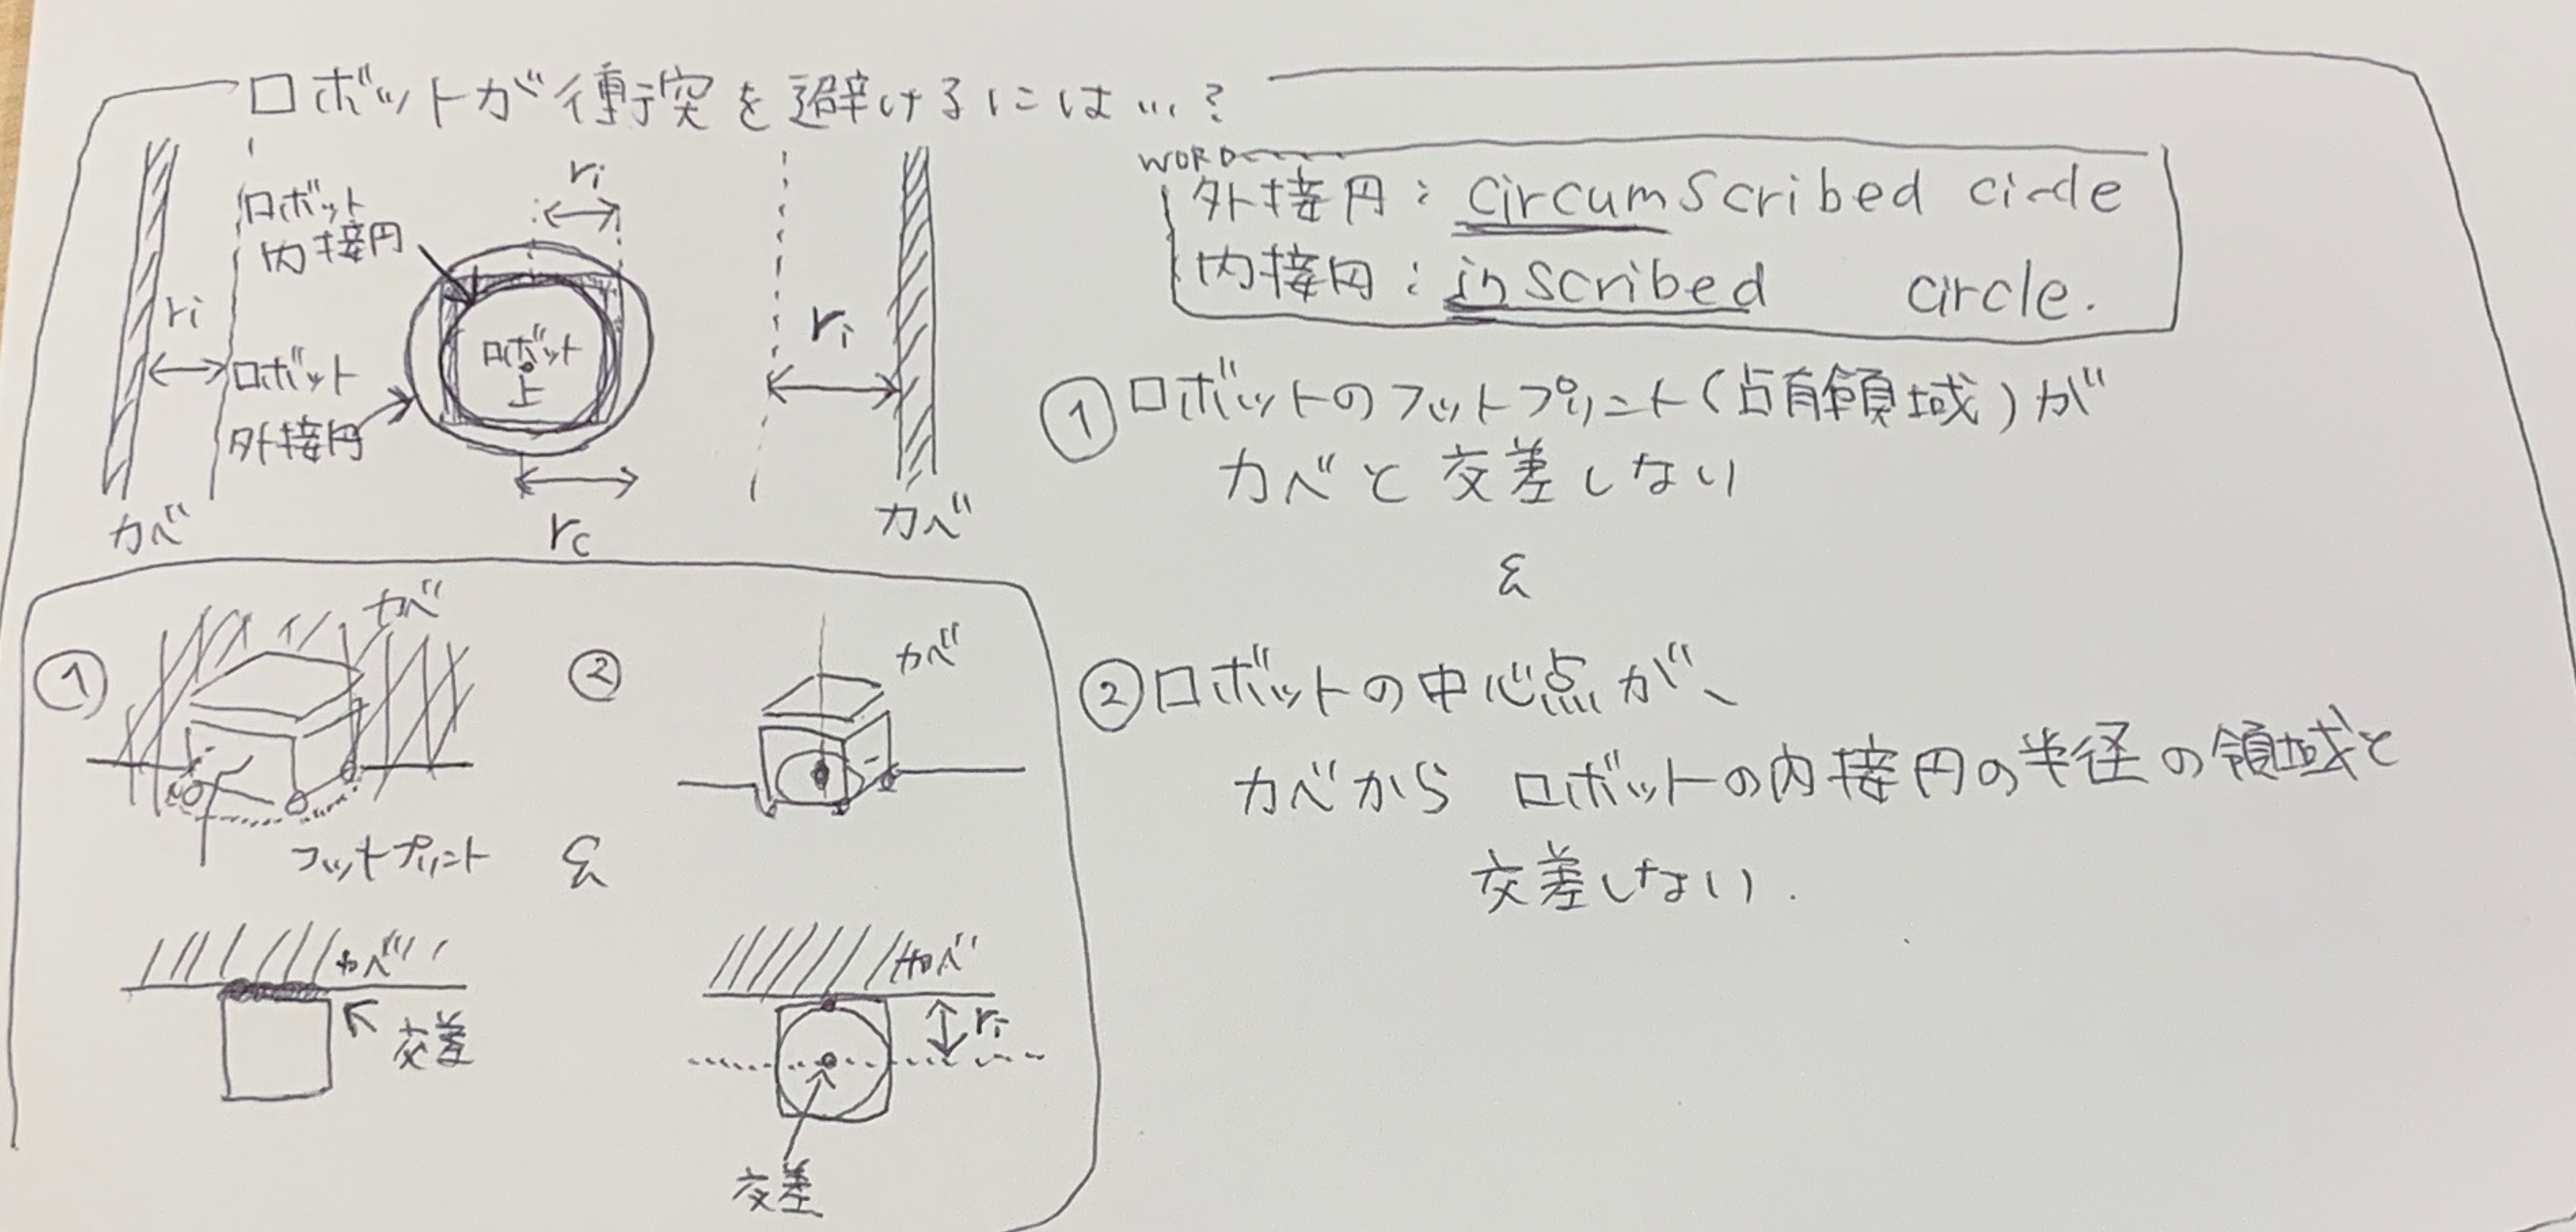 ロボットが衝突を避けるには…?
ri
ロボット
内接円
ri
ロボット
外接円
ロボット
上
ri
rc
カベ
カベ
WORD
外接円:circumscribed circle
内接円:inscribed circle.
① ロボットのフットプリント(占有領域)が
カベと交差しない
&
② ロボットの中心点が、
カベから ロボットの内接円の半径の領域と
交差しない.
①
カベ
フットプリント
&
②
カベ
カベ
交差
カベ
ri
交差